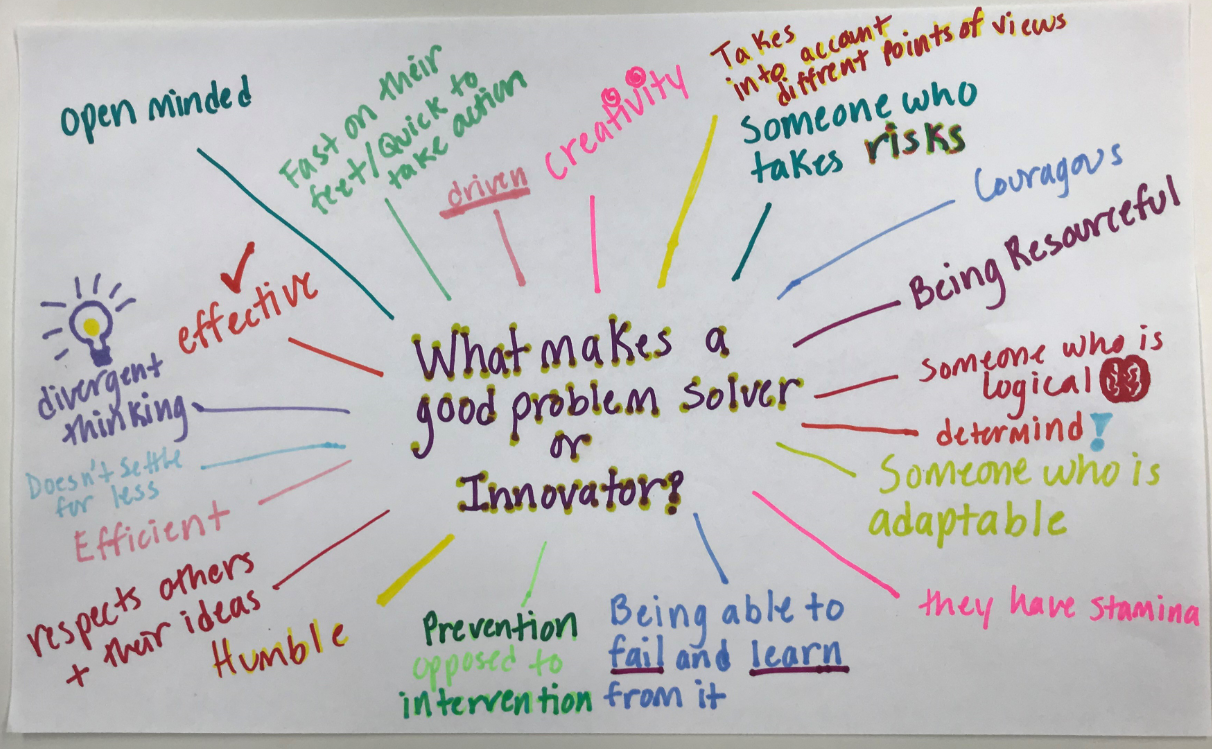 open minded
Fast on their
feet/Quick to
take action
driven
creativity
Takes
into account
diffrent points of views
Someone who
takes risks
Couragous
Being Resourceful
Someone who is
logical
determind!
Someone who is
adaptable
they have stamina
Being able to
fail and learn
from it
Prevention
opposed to
intervention
Humble
respects others
+ their ideas
Efficient
Doesn't settle
for less
divergent
thinking
effective
What makes a
good problem solver
or
Innovator?